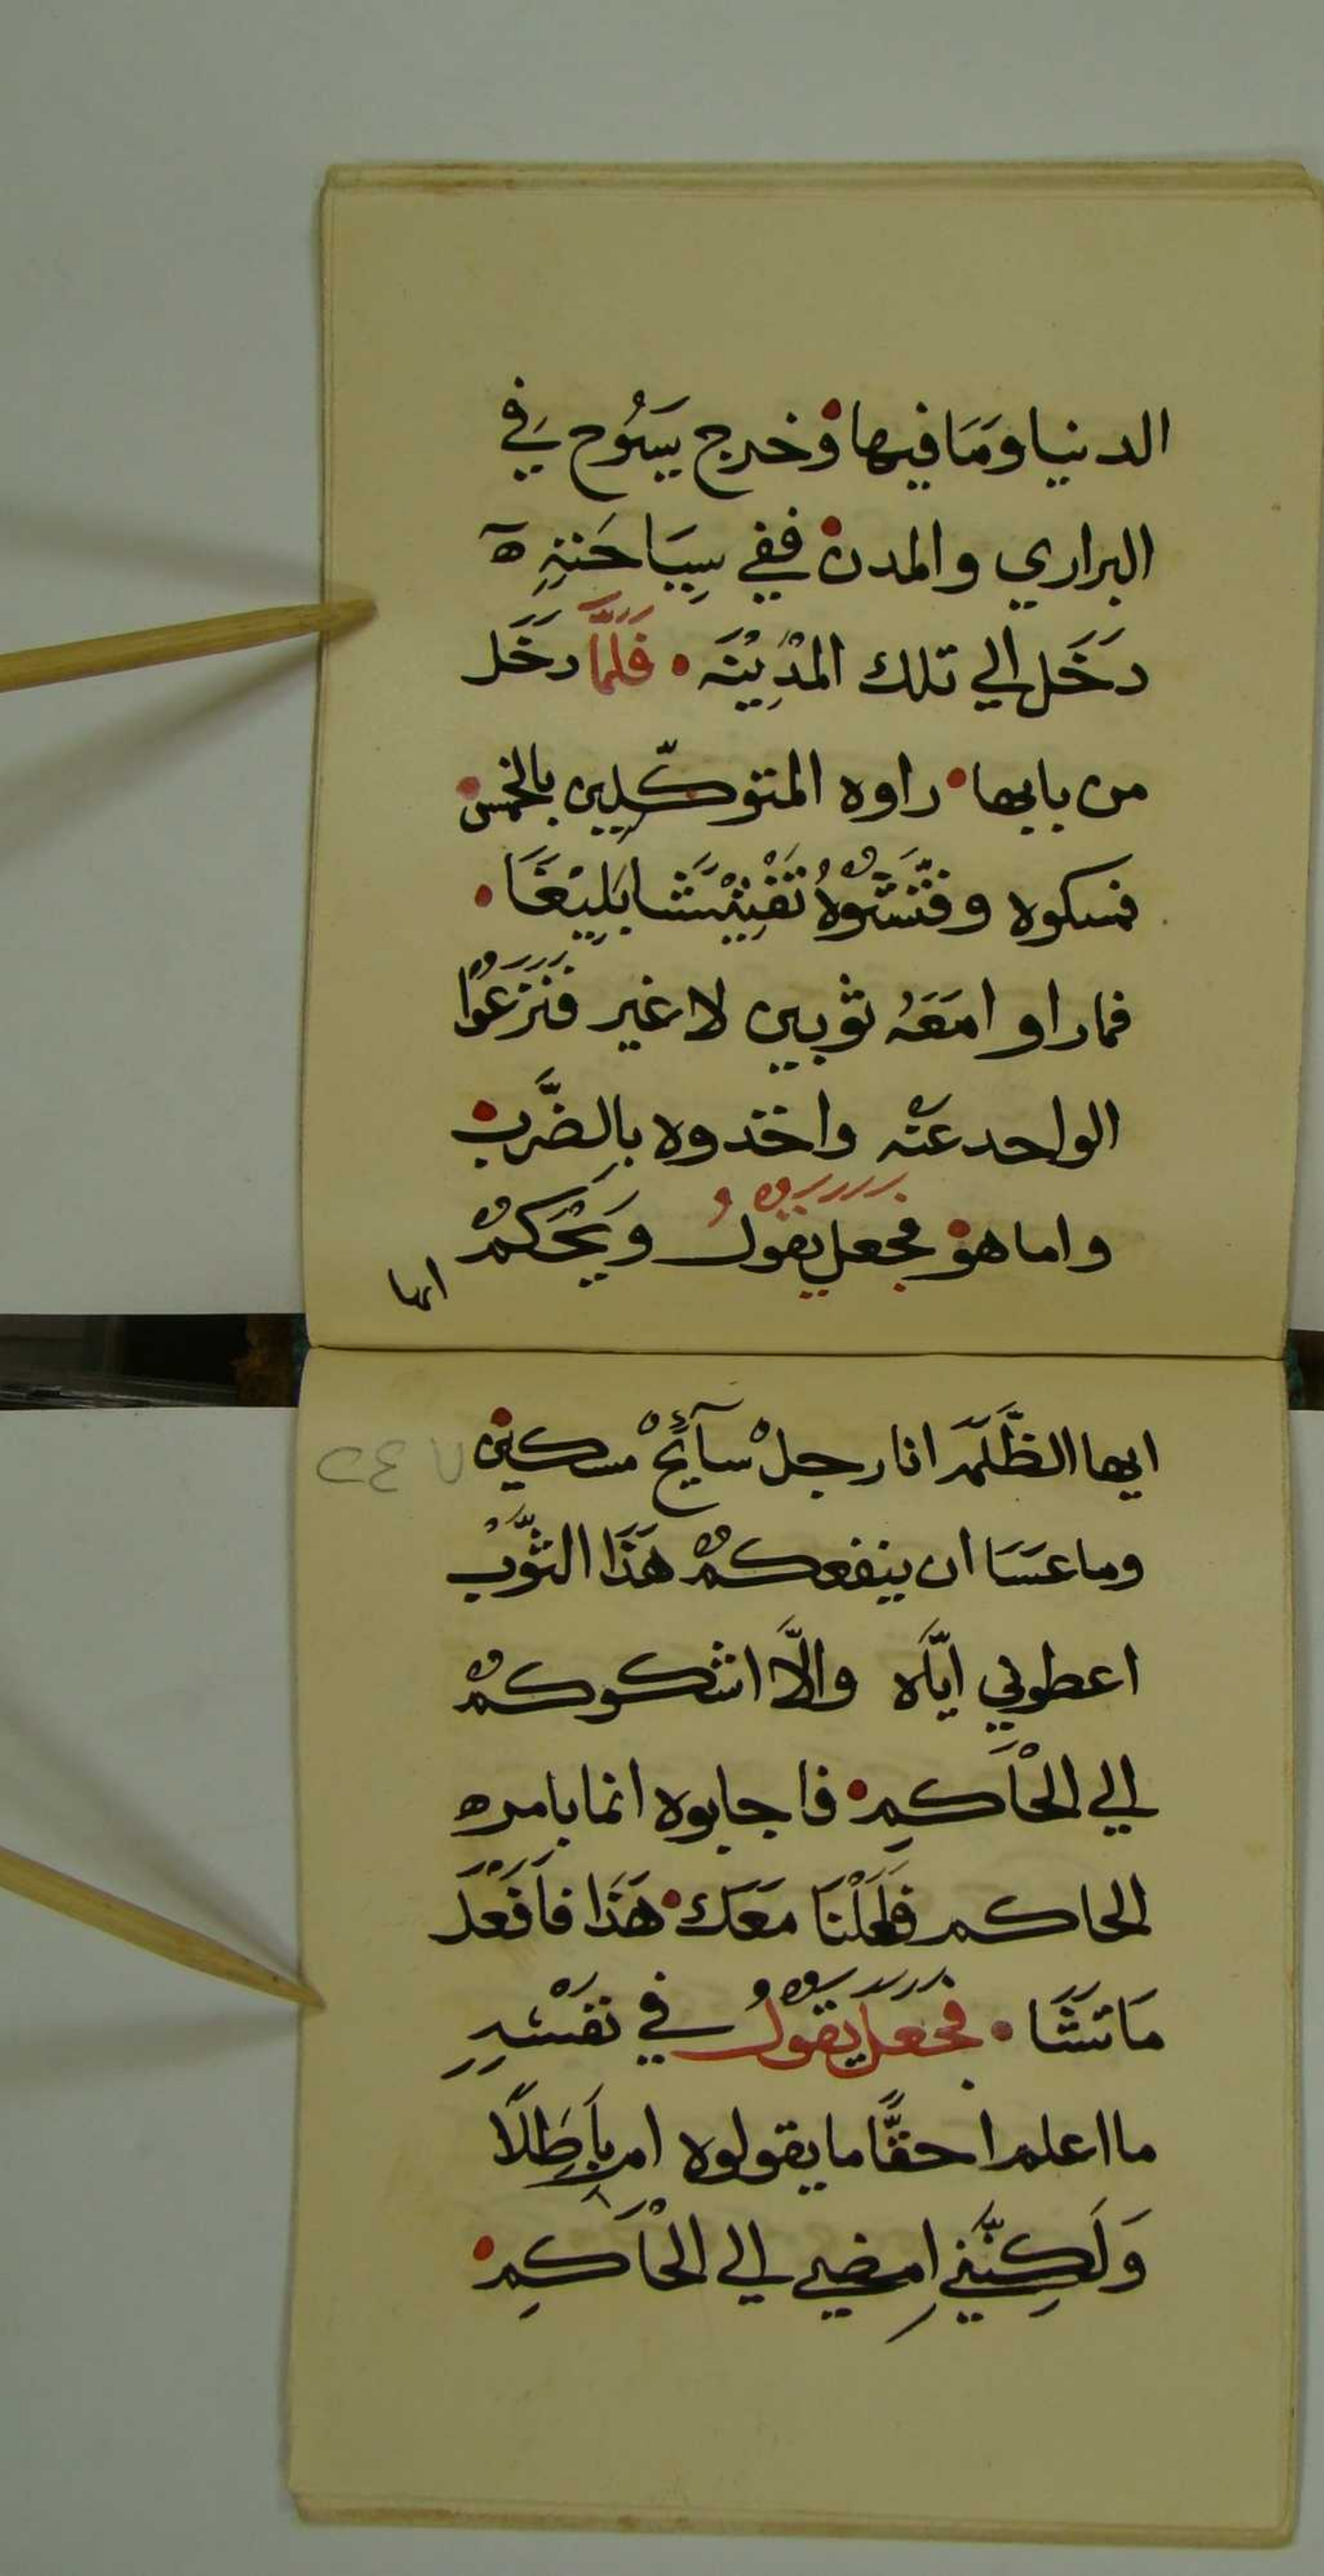 الدنيا ومَا فيها وخرج يسَوُح في
البراري والمدن ففي سِيَاحَتِهِ ه
دَخَل الي تلك المدِيْنَه • فَلَمَّا دخَل
من بابها • راوه المتوكّلين بالخمس
فمسكوه وفَتَّشَوُهْ تَفْتِيْشَا بَلِيْغَا •
فما راوا مَعَهُ ثوبين لا غير فنَزَعُوْا
الواحد عنْه واخذوه بالضَّرب
واما هو فجعل يقولُ وَيْحَكمُ
ايها
ايها الظَّلَمَه انا رجلْ سآئِحْ مسكين
وما عسَا ان ينفعكمُ هَذَا الثَّوْب
اعطوني ايّاه والَّا اشكوكمُ
الي الحْاكِم • فاجابوه انما بامر ه
الحاكم فَعَلْنَا مَعَك • هَذَا فافْعَل
مَا تَشَا • فَجَعَل يَقوْلُ في نفْسِهِ
ما اعلم احقًّا ما يقولوه ام بَاطِلًا
وَلَكِنَّني امضي الي الحْاكِم •